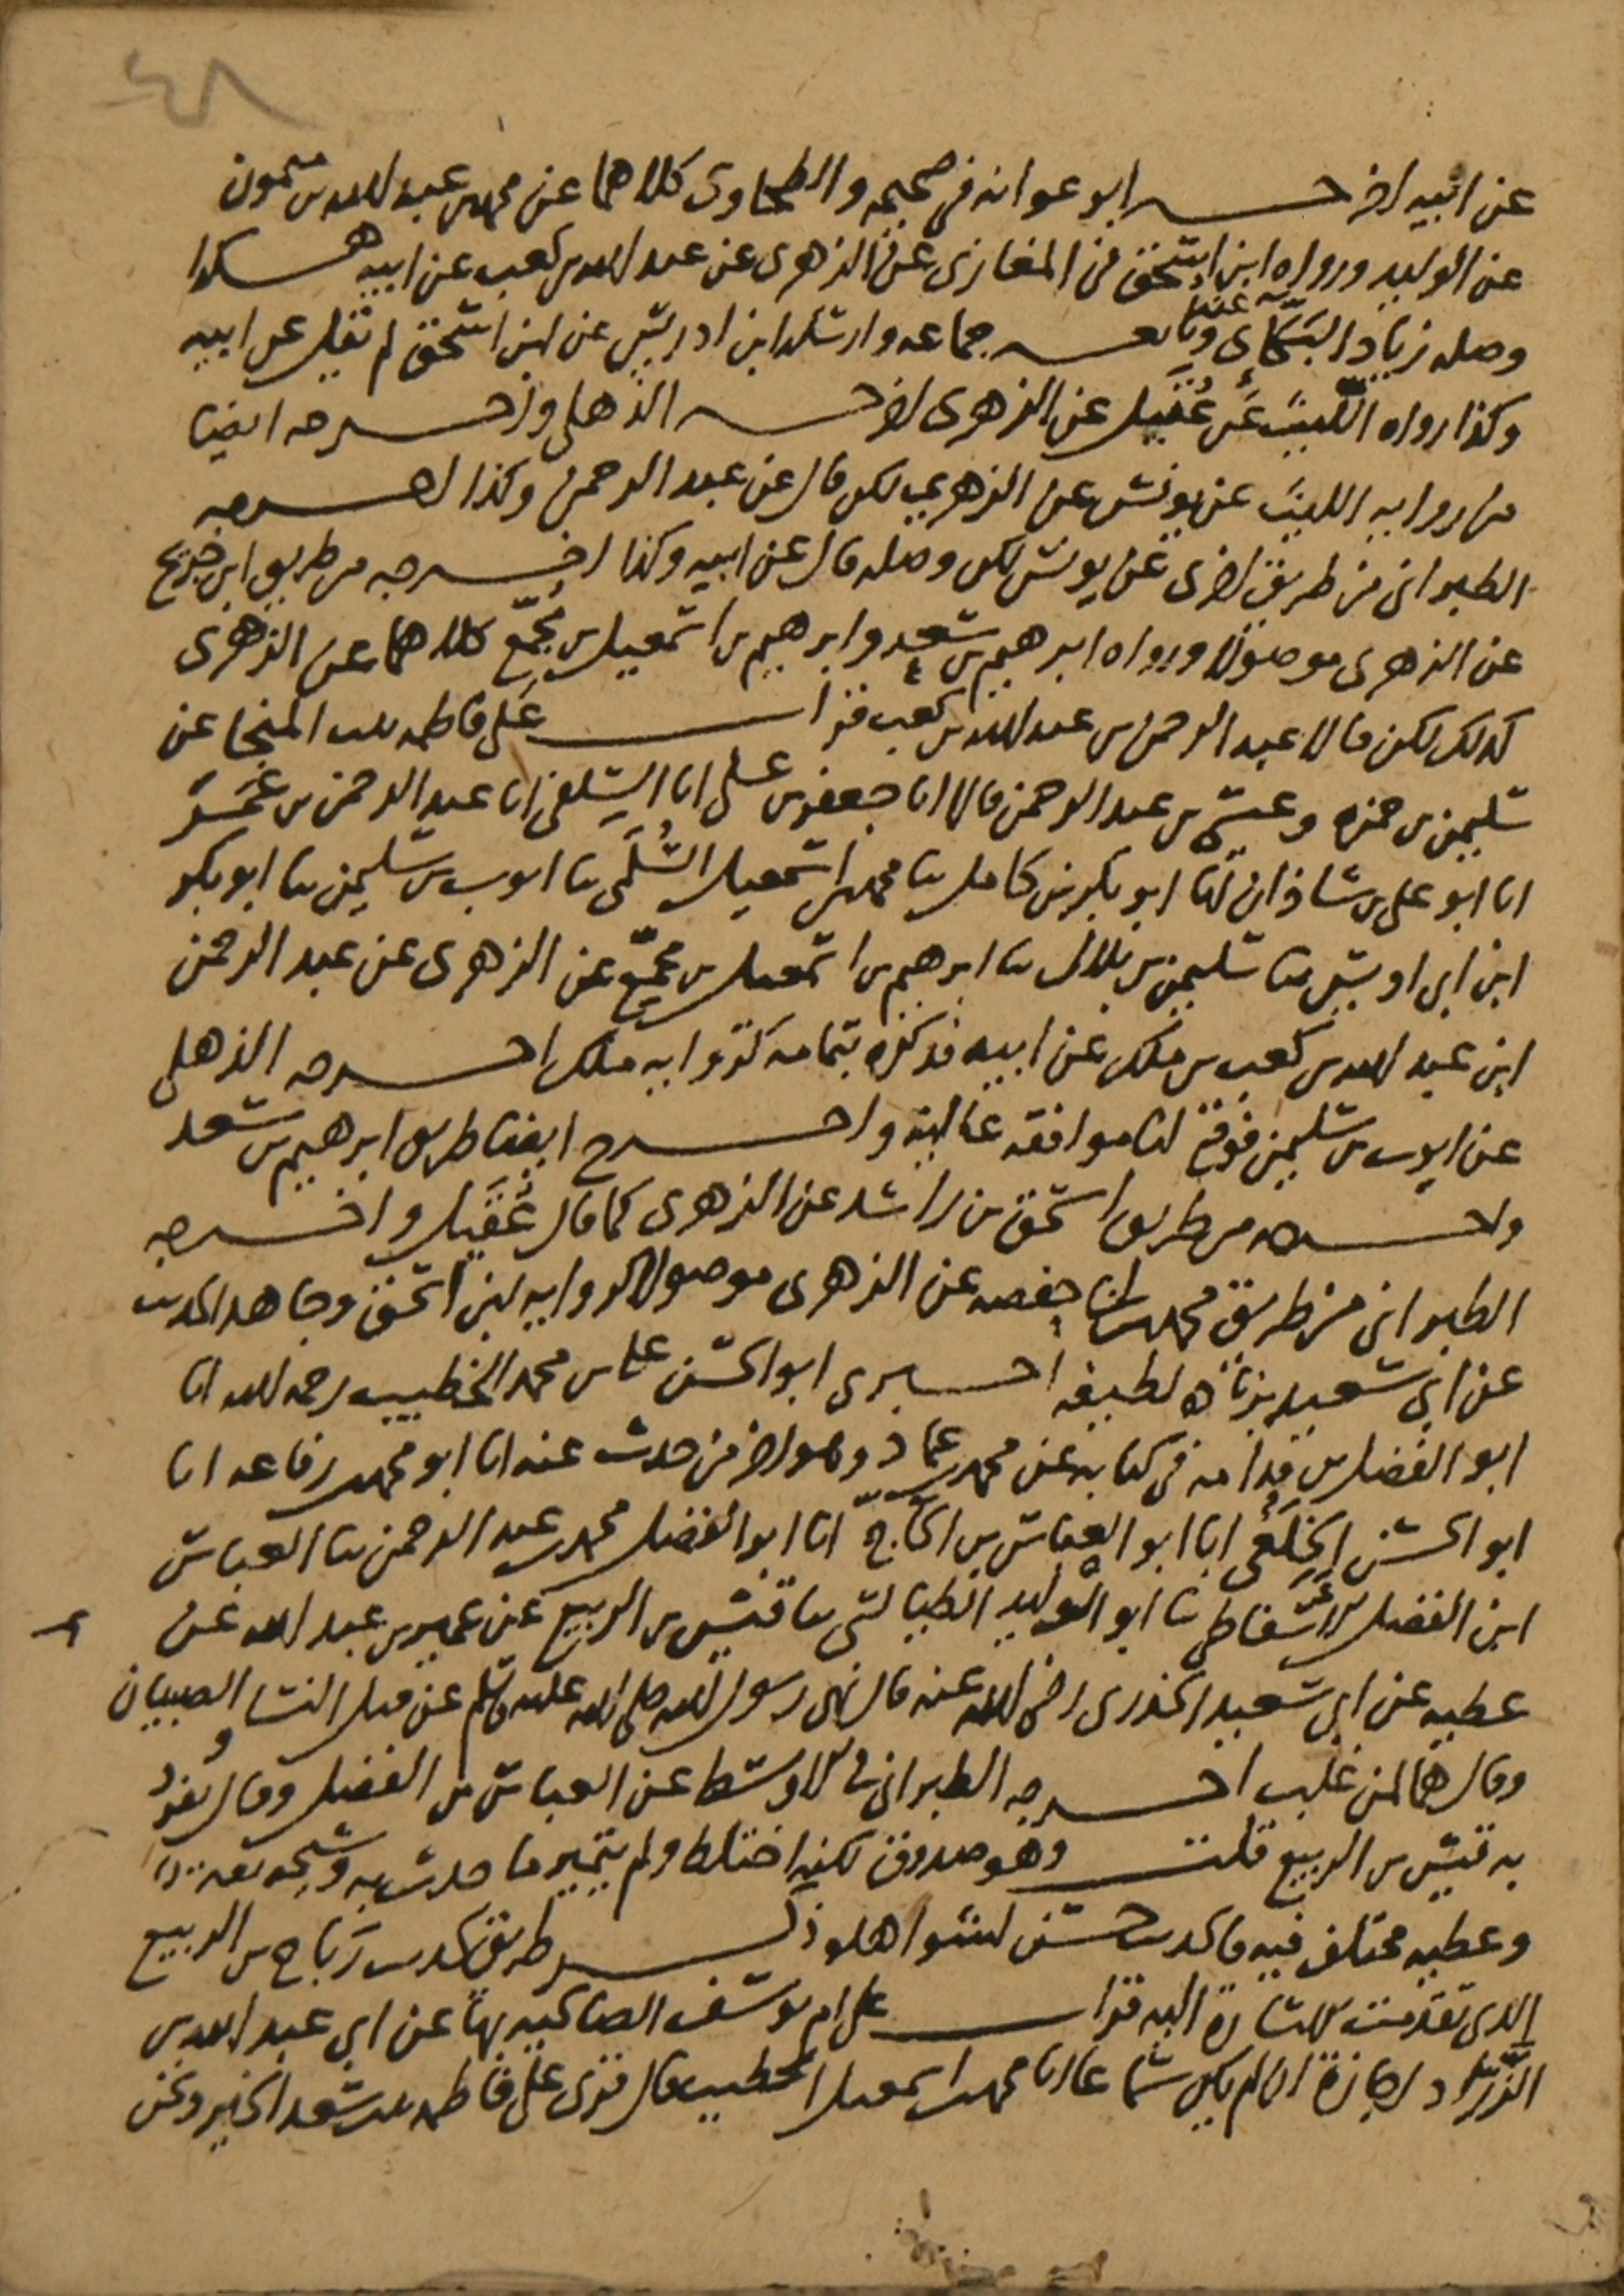 ٤٨
عن ابيه اخرجه ابو عوانه في صحيحه والطحاوى كلاهما عن محمد بن عبد الله بن ميمون
عن الوليد ورواه ابن اسحق في المغازى عن الزهرى عن عبد الله بن كعب عن ابيه هكذا
وصله زياد البكائى عنه وتابعه جماعه وارسله ابن ادريس عن ابن اسحق لم يقل عن ابيه
وكذا رواه الليث عن عُقيل عن الزهرى اخرجه الذهلى واخرجه ايضا
من روايه الليث عن يونس عن الزهرى لكن قال عن عبد الرحمن وكذا اخرجه
الطبرانى من طريق اخرى عن يونس لكن وصله قال عن ابيه وكذا اخرجه من طريق ابن جريج
عن الزهرى موصولا ورواه ابرهيم بن سعد وابرهيم بن اسمعيل بن مجمّع كلاهما عن الزهرى
كذلك لكن قالا عبد الرحمن بن عبد الله بن كعب قرات على فاطمه بنت المنجا عن
سليمن بن حمزه وعيسى بن عبد الرحمن قالا انا جعفر بن على انا السلفى انا عبد الرحمن بن عمر
انا ابو على بن شاذان انا ابو بكر بن كامل ثنا محمد بن اسمعيل السُّلَمى ثنا ايوب بن سليمن ثنا ابو بكر
ابن ابى اويس ثنا سليمن بن بلال ثنا ابرهيم بن اسمعيل بن مجمّع عن الزهرى عن عبد الرحمن
ابن عبد الله بن كعب بن ملك عن ابيه فذكره بتمامه كروايه ملك اخرجه الذهلى
عن ايوب بن سليمن فوقع لنا موافقه عاليه واخرج ايضا طريق ابرهيم بن سعد
واخرجه من طريق اسحق بن راشد عن الزهرى كما قال عُقَيل واخرجه
الطبرانى من طريق محمد بن ابى حفصه عن الزهرى موصولا كروايه ابن اسحق وجاهد الحديث
عن ابى سعيد بزياده لطيفه اخبرنى ابو الحسن على بن محمد الخطيب رحمه الله انا
ابو الفضل بن قدامه في كتابه عن محمد بن عماد وهو اخر من حدث عنه انا ابو محمد بن رفاعه انا
ابو الحسن الخِلَعى انا ابو العباس بن الحاج انا ابو الفضل محمد بن عبد الرحمن ثنا العباس
ابن الفضل الاسفاطى ثنا ابو الوليد الطيالسى ثنا قيس بن الربيع عن عمير بن عبد الله عن
عطيه عن ابى سعيد الخدرى رضى الله عنه قال نهى رسول الله صلى الله عليه وسلم عن قتل النسا والصبيان
وقال هما لمن غلب اخرجه الطبرانى في الاوسط عن العباس بن الفضل وقال تفرد
به قيس بن الربيع قلت وهو صدوق لكنه اختلط ولم يتميز ما حدث به وشيخه ثقه
وعطيه مختلف فيه فالحديث حسن لشواهده ذكر طريق لحديث رَبَاح بن الربيع
الذى تقدمت الاشارة اليه قرات على ام يوسف الصالحيه بها عن ابى عبد الله بن
الزرّاد اجازة ان لم يكن سماعا انا محمد بن اسمعيل الخطيب قال قرى على فاطمه بنت سعد الخير ونحن